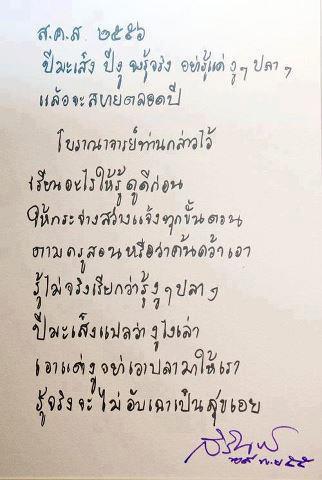 ส.ค.ส. ๒๕๕๖
ปีมะเส็ง ปีงู จงรู้จริง อย่ารู้แค่ งูๆ ปลาๆ
แล้วจะสบายตลอดปี
โบราณาจารย์ท่านกล่าวไว้
เรียนอะไรให้รู้ดูดีก่อน
ให้กระจ่างสว่างแจ้งทุกขั้นตอน
ตามครูสอนหรือว่าค้นคว้าเอา
รู้ไม่จริงเรียกว่ารู้งูๆปลาๆ
ปีมะเส็งแปลว่างูไงเล่า
เอาแค่งูอย่าเอาปลามาให้เรา
รู้จริงจะไม่อับเฉาเป็นสุขเอย
สิรินธร
พ.ย. ๕๕